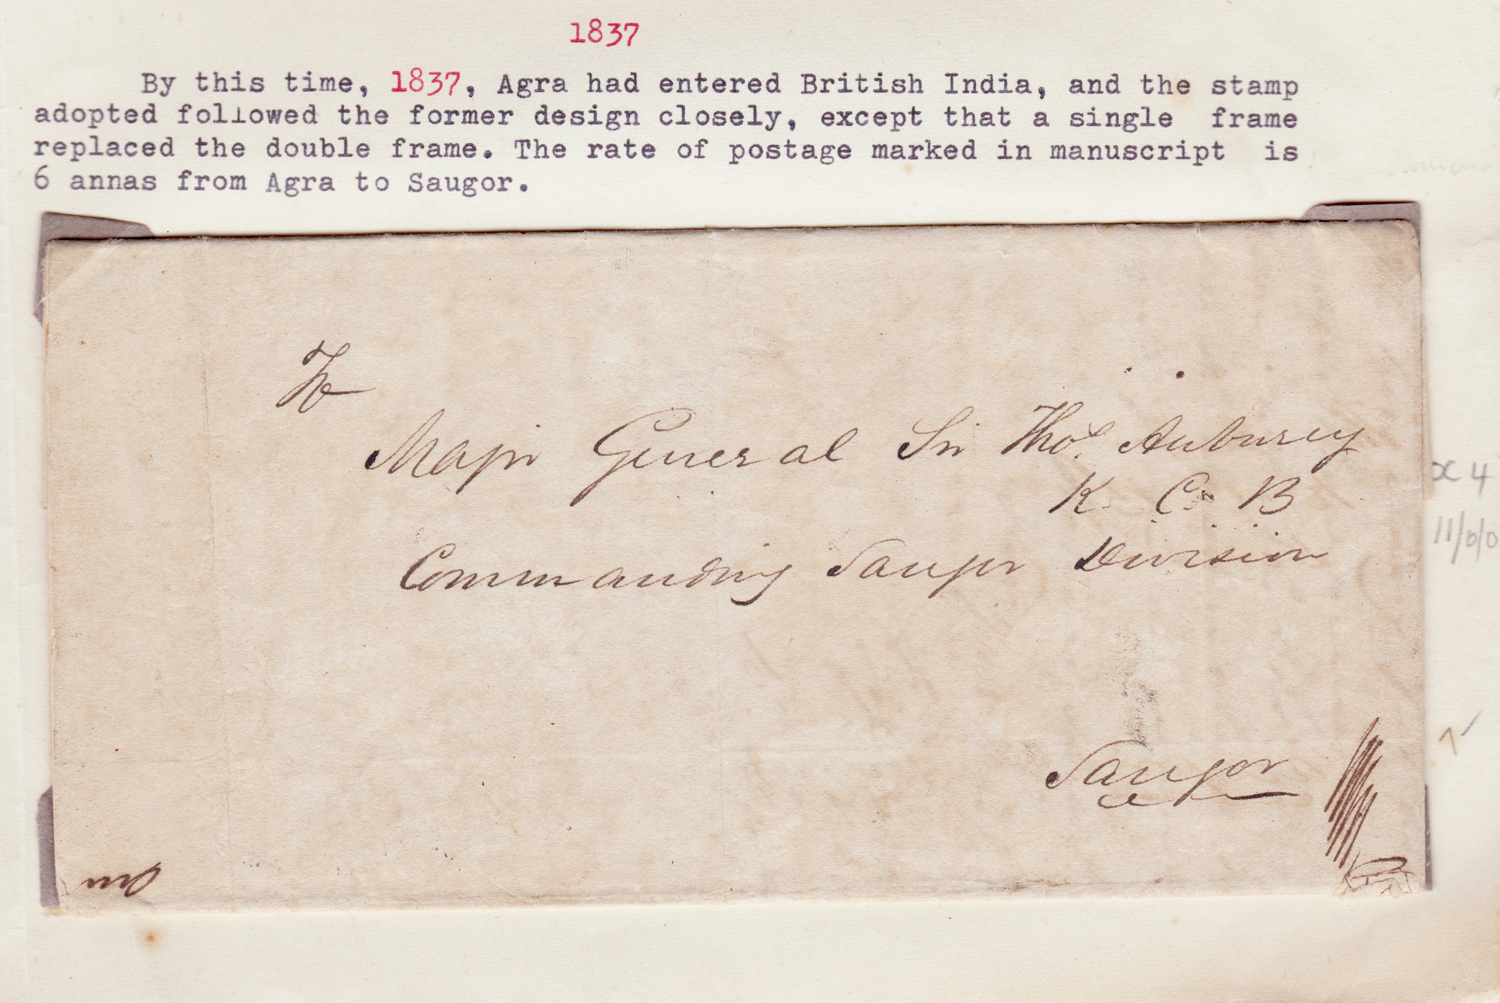 1837
By this time, 1837, Agra had entered British India, and the stamp
adopted followed the former design closely, except that a single frame
replaced the double frame. The rate of postage marked in manuscript is
6 annas from Agra to Saugor.
To
Major General Sir Thos. Anburey
K. C. B
x 4
11/0/0
Commanding Saugor Division
Saugor